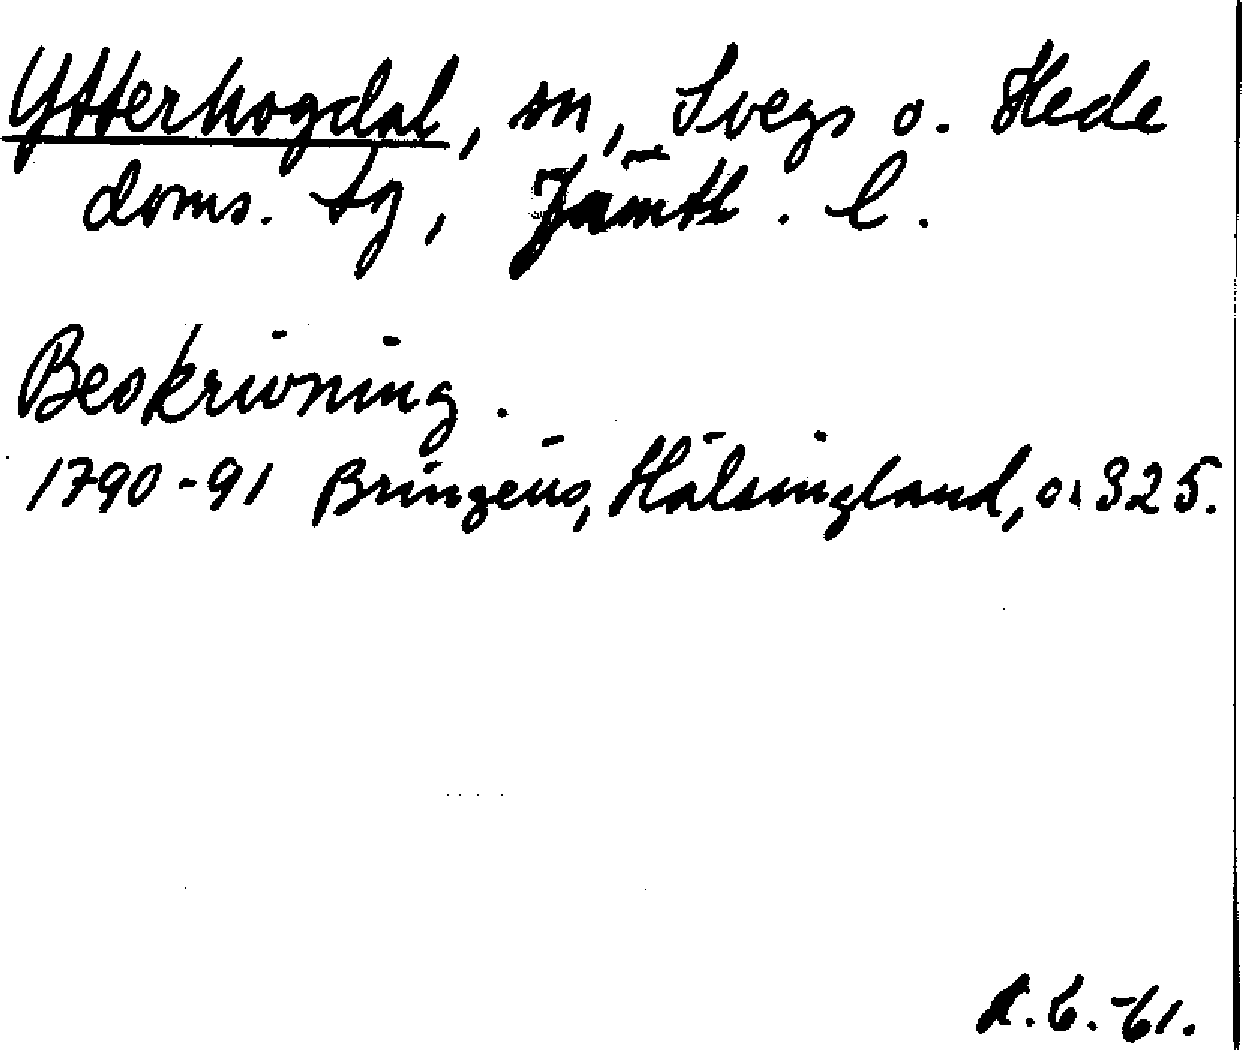 Ytterhogdal, sn, Svegs o. Hede
doms. tg, Jämtl. l.
Beskrivning.
1790-91 Bringéus, Hälsingland, s. 325.
R.C.-61.